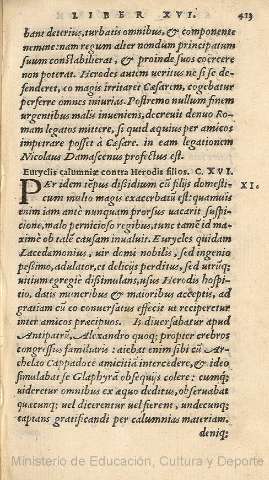 LIBER XVI. 413
bant deterius, turbatis omnibus, & componente
nemine: nam regum alter nondum principatum
suum constabilierat, & proinde suos coërcere
non poterat. Herodes autem veritus ne si se de-
fenderet, eo magis irritaret Cæsarem, cogebatur
perferre omnes iniurias. Postremo nullum finem
urgentibus malis inueniens, decreuit denuo Ro-
mam legatos mittere, si quid æquius per amicos
impetrare posset à Cæsare. in eam legationem
Nicolaus Damascenus profectus est.
Eurycles calumniæ contra Herodis filios. C. XVI.
PEr idem tẽpus dissidium cũ filijs domesti-
XI.
cum multo magis exacerbatũ est: quamuis
enim iam antè nunquam prorsus vacarit suspi-
cione, malo pernicioso regibus, tunc tamẽ id ma-
ximè ob talẽ causam inualuit. Eurycles quidam
Lacedæmonius, uir domi nobilis, sed ingenio
pessimo, adulator, et delicijs perditus, sed utrũq;
uitium egregiè dissimulans, usus Herodis hospi-
tio, datis muneribus & maioribus acceptis, ad
gratiam cũ eo conuersatus effecit ut reciperetur
inter amicos præcipuos. Is diuersabatur apud
Antipatrũ, Alexandro quoq; propter crebros
congressus familiaris: aiebat enim sibi cũ Ar-
chelao Cappadoce amicitiã intercedere, & ideo
simulabat se Glaphyrã obsequijs colere: cumq;
uideretur omnibus ex æquo deditus, obseruabat
quæcunq; uel dicerentur uel fierent, undecunq;
captans gratificandi per calumnias materiam.
deniq;
Ministerio de Educación, Cultura y Deporte